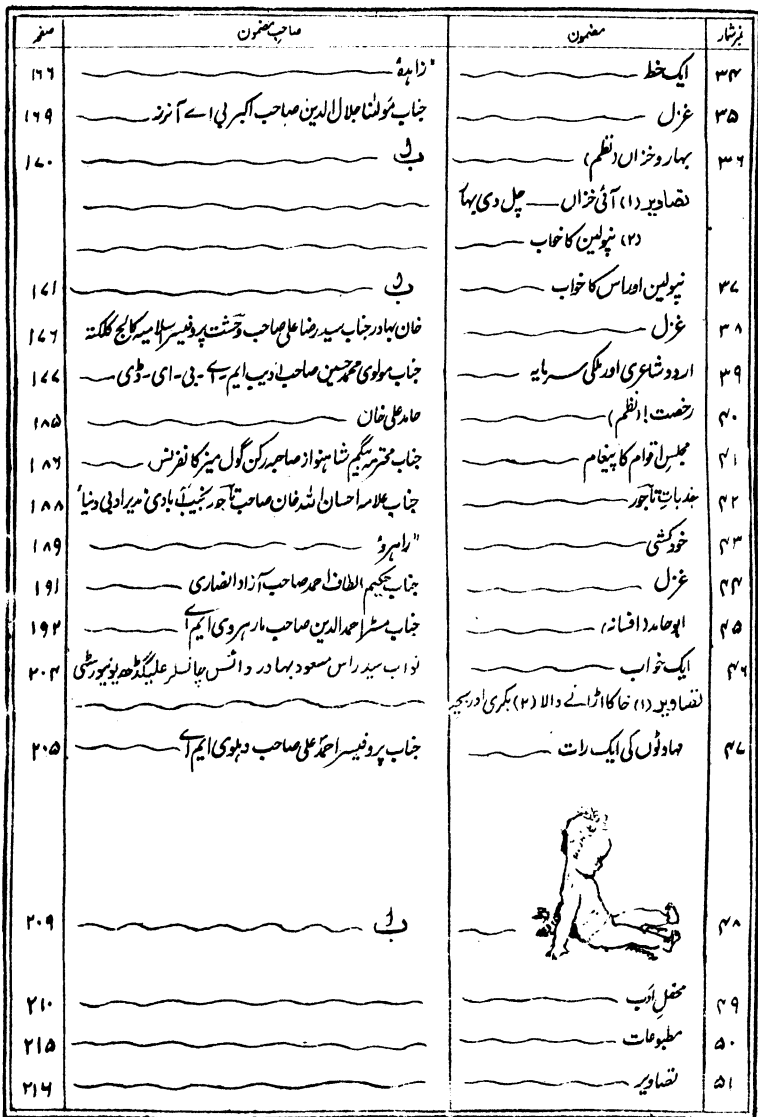 نمبرشمار مضمون صاحبِ مضمون صفحہ
۳۴ ایک خط "زاہدہ" ۱۶۶
۳۵ غزل جناب مولٰنا جلال الدین صاحب اکبر بی اے آنرز ۱۶۹
۳۶ بہار و خزاں (نظم) ۱۷۰
تصاویر (۱) آئی خزاں — چل دی بہا
(۲) نپولین کا خواب
۳۷ نپولین اور اس کا خواب ۱۷۱
۳۸ غزل خان بہادر جناب سید رضا علی صاحب وحشت پروفیسر اسلامیہ کالج کلکتہ ۱۷۶
۳۹ اردو شاعری اور ملکی سرمایہ جناب مولوی محمد حسین صاحب ادیب ایم-اے-بی-ای-ڈی ۱۷۷
۴۰ رخصت! (نظم) حامد علی خان ۱۸۵
۴۱ مجلسِ اقوام کا پیغام جناب محترمہ بیگم شاہنواز صاحبہ رکن گول میز کانفرنس ۱۸۶
۴۲ جذباتِ تاجور جناب علامہ احسان اللہ خان صاحب تاجور نجیب آبادی مدیر ادبی دنیا ۱۸۸
۴۳ خودکشی "راہرو" ۱۸۹
۴۴ غزل جناب حکیم الطاف احمد صاحب آزاد انصاری ۱۹۱
۴۵ ابو حامد (افسانہ) جناب مسٹر احمد الدین صاحب مارہروی ایم اے ۱۹۲
۴۶ ایک خواب نواب سید راس مسعود بہادر وائس چانسلر علیگڈھ یونیورسٹی ۲۰۴
تصاویر (۱) خاکا اڑانے والا (۲) بکری اور بچہ
۴۷ مہاوٹوں کی ایک رات جناب پروفیسر احمد علی صاحب دہلوی ایم اے ۲۰۵
۴۸ ۲۰۹
۴۹ محفلِ ادب ۲۱۰
۵۰ مطبوعات ۲۱۵
۵۱ تصاویر ۲۱۶